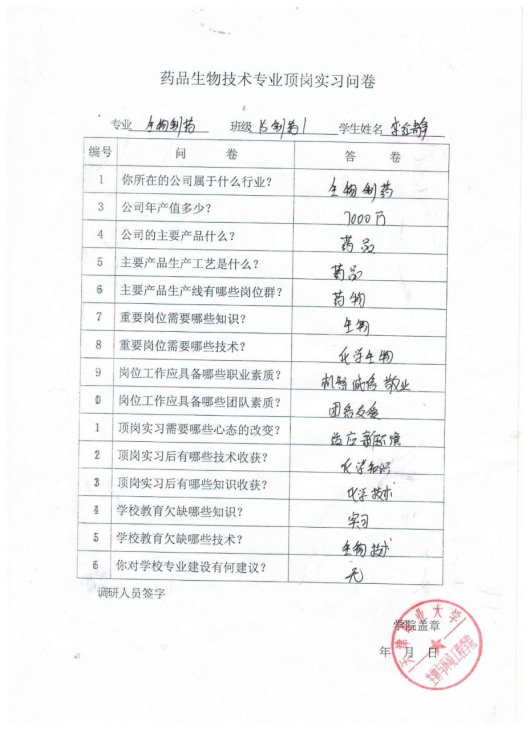 药品生物技术专业顶岗实习问卷
专业 生物制药 班级 15制药1 学生姓名
编号 问 卷 答 卷
1 你所在的公司属于什么行业？ 生物制药
3 公司年产值多少？ 7000万
4 公司的主要产品什么？ 药品
5 主要产品生产工艺是什么？ 药品
6 主要产品生产线有哪些岗位群？ 药物
7 重要岗位需要哪些知识？ 生物
8 重要岗位需要哪些技术？ 化学生物
9 岗位工作应具备哪些职业素质？ 机智 诚信 敬业
0 岗位工作应具备哪些团队素质？ 团结友爱
1 顶岗实习需要哪些心态的改变？ 适应新环境
2 顶岗实习后有哪些技术收获？ 化学知识
3 顶岗实习后有哪些知识收获？ 化学技术
4 学校教育欠缺哪些知识？ 实习
5 学校教育欠缺哪些技术？ 生物技术
6 你对学校专业建设有何建议？ 无
调研人员签字
学院盖章
年 月 日
天津职业大学